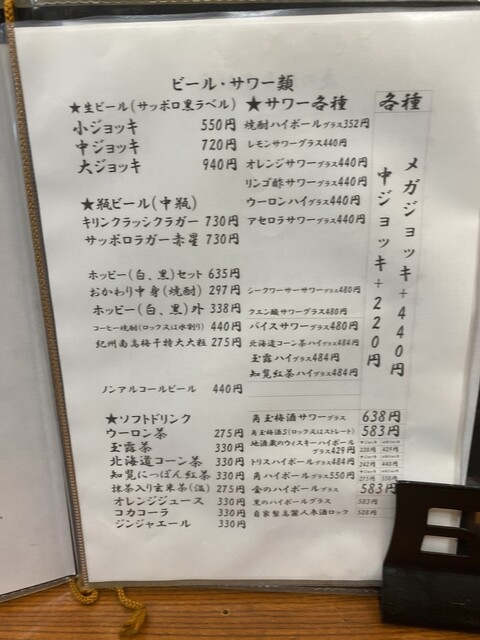 ビール・サワー類
★生ビール(サッポロ黒ラベル)
小ジョッキ 550円
中ジョッキ 720円
大ジョッキ 940円
★瓶ビール(中瓶)
キリンクラッシクラガー 730円
サッポロラガー赤星 730円
ホッピー(白、黒)セット 635円
おかわり中身(焼酎) 297円
ホッピー(白、黒)外 338円
コーヒー焼酎(ロックス は水割り) 440円
紀州南高梅干特大大粒 275円
ノンアルコールビール 440円
★ソフトドリンク
ウーロン茶 275円
玉露茶 330円
北海道コーン茶 330円
知覧にっぽん紅茶 330円
抹茶入り玄米茶(温) 275円
オレンジジュース 330円
コカコーラ 330円
ジンジャエール 330円
★サワー各種
焼酎ハイボールグラス352円
レモンサワーグラス440円
オレンジサワーグラス440円
リンゴ酢サワーグラス440円
ウーロンハイグラス440円
アセロラサワーグラス440円
シークワーサーサワーグラス480円
クエン酸サワーグラス480円
バイスサワーグラス480円
北海道コーン茶ハイグラス484円
玉露ハイグラス484円
知覧紅茶ハイグラス484円
角玉梅酒サワーグラス 638円
角玉梅酒S(ロックスはストレート) 583円
地酒蔵のウィスキーハイボール
グラス429円
トリスハイボールグラス484円
角ハイボールグラス550円
金のハイボールグラス 583円
黒のハイボールグラス 583円
自家製高麗人参酒ロック 528円
各種
メガジョッキ+440円
中ジョッキ+220円